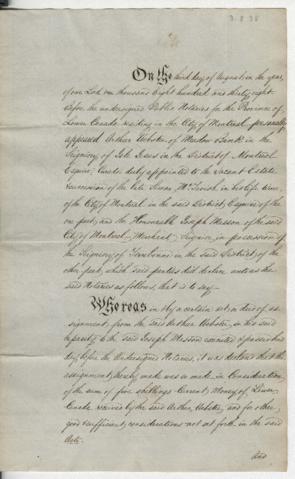 3. 8. 38
On the third day of August in the year
of our Lord one thousand Eight hundred and thirty eight
before the undersigned Public Notaries for the Province of
Lower Canada residing in the City of Montreal personally
appeared Arthur Webster of Meadow Bank in the
Seigniory of Isle Jesus in the District of Montreal
Esquire, Curator duly appointed to the Vacant Estate
Succession of the late Simon McTavish, in his life time
of the City of Montreal in the said District, Esquire, of the
one part; and the Honorable Joseph Masson of the said
City of Montreal, Merchant, Seignior in possession of
the Seigniory of Terrebonne in the said District, of the
other part, which said parties did declare unto us the
said Notaries as follows, that is to say
Whereas in & by a certain act or deed of as
signment from the said Arthur Webster, in his said
capacity to the said Joseph Masson executed & passed this
day before the Undersigned Notaries, it was declared that the
assignment thereby made was so made in Consideration
of the sum of five shillings Current Money of Lower
Canada received by the said Arthur Webster, and for other
good sufficient considerations not set forth in the said
Act.
And